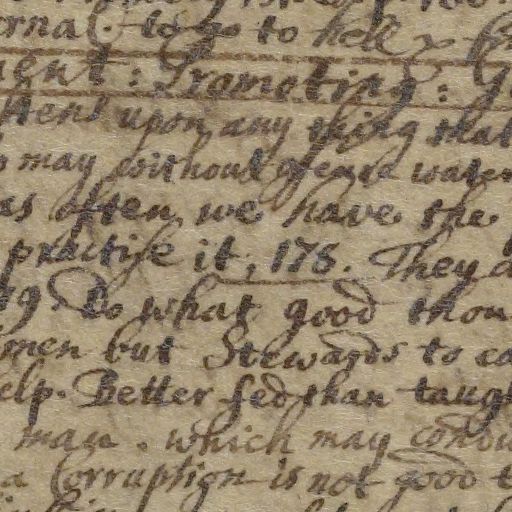 to go to hell
ent: Promoting:
upon any thing that
may without feare water
as often we have the
practise it, 178. They
Do what good thou
men but Stewards to
elp. Better fed than taug
man. which may
a Corruption is not good t